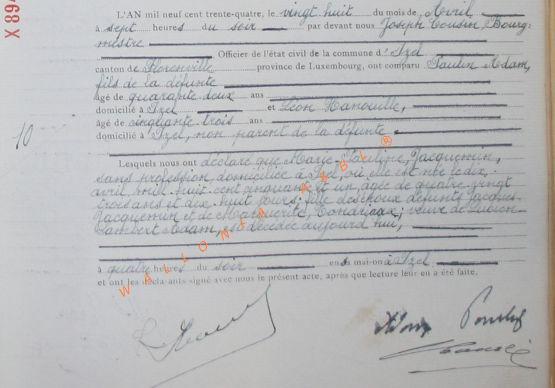 X 894
L'AN mil neuf cent trente-quatre, le vingt huit du mois de Avril
à sept heures du soir par devant nous Joseph Cousin, Bourg-
mestre
Officier de l'état civil de la commune d'Izel
canton de Florenville province de Luxembourg, ont comparu Paulin Adam,
fils de la défunte
agé de quarante deux ans
domicilié à Izel et Léon Hanouille,
âgé de cinquante trois ans
domicilié à Izel, non parent de la défunte
10
Lesquels nous ont déclaré que Marie Pauline, Jacquemin,
sans profession, domiciliée à Izel, où elle est née le dix
avril mil huit cent cinquante et un, agée de quatre vingt
trois ans et dix huit jours; fille des époux défunts Jacques
Jacquemin et de Marguerite, veuve de
Lambert Adam, est décédée aujourd'hui,
à quatre heures du soir en sa maison à Izel
et ont les déclarants signé avec nous le présent acte, après que lecture leur en a été faite.
WALLONIA ASBL ®